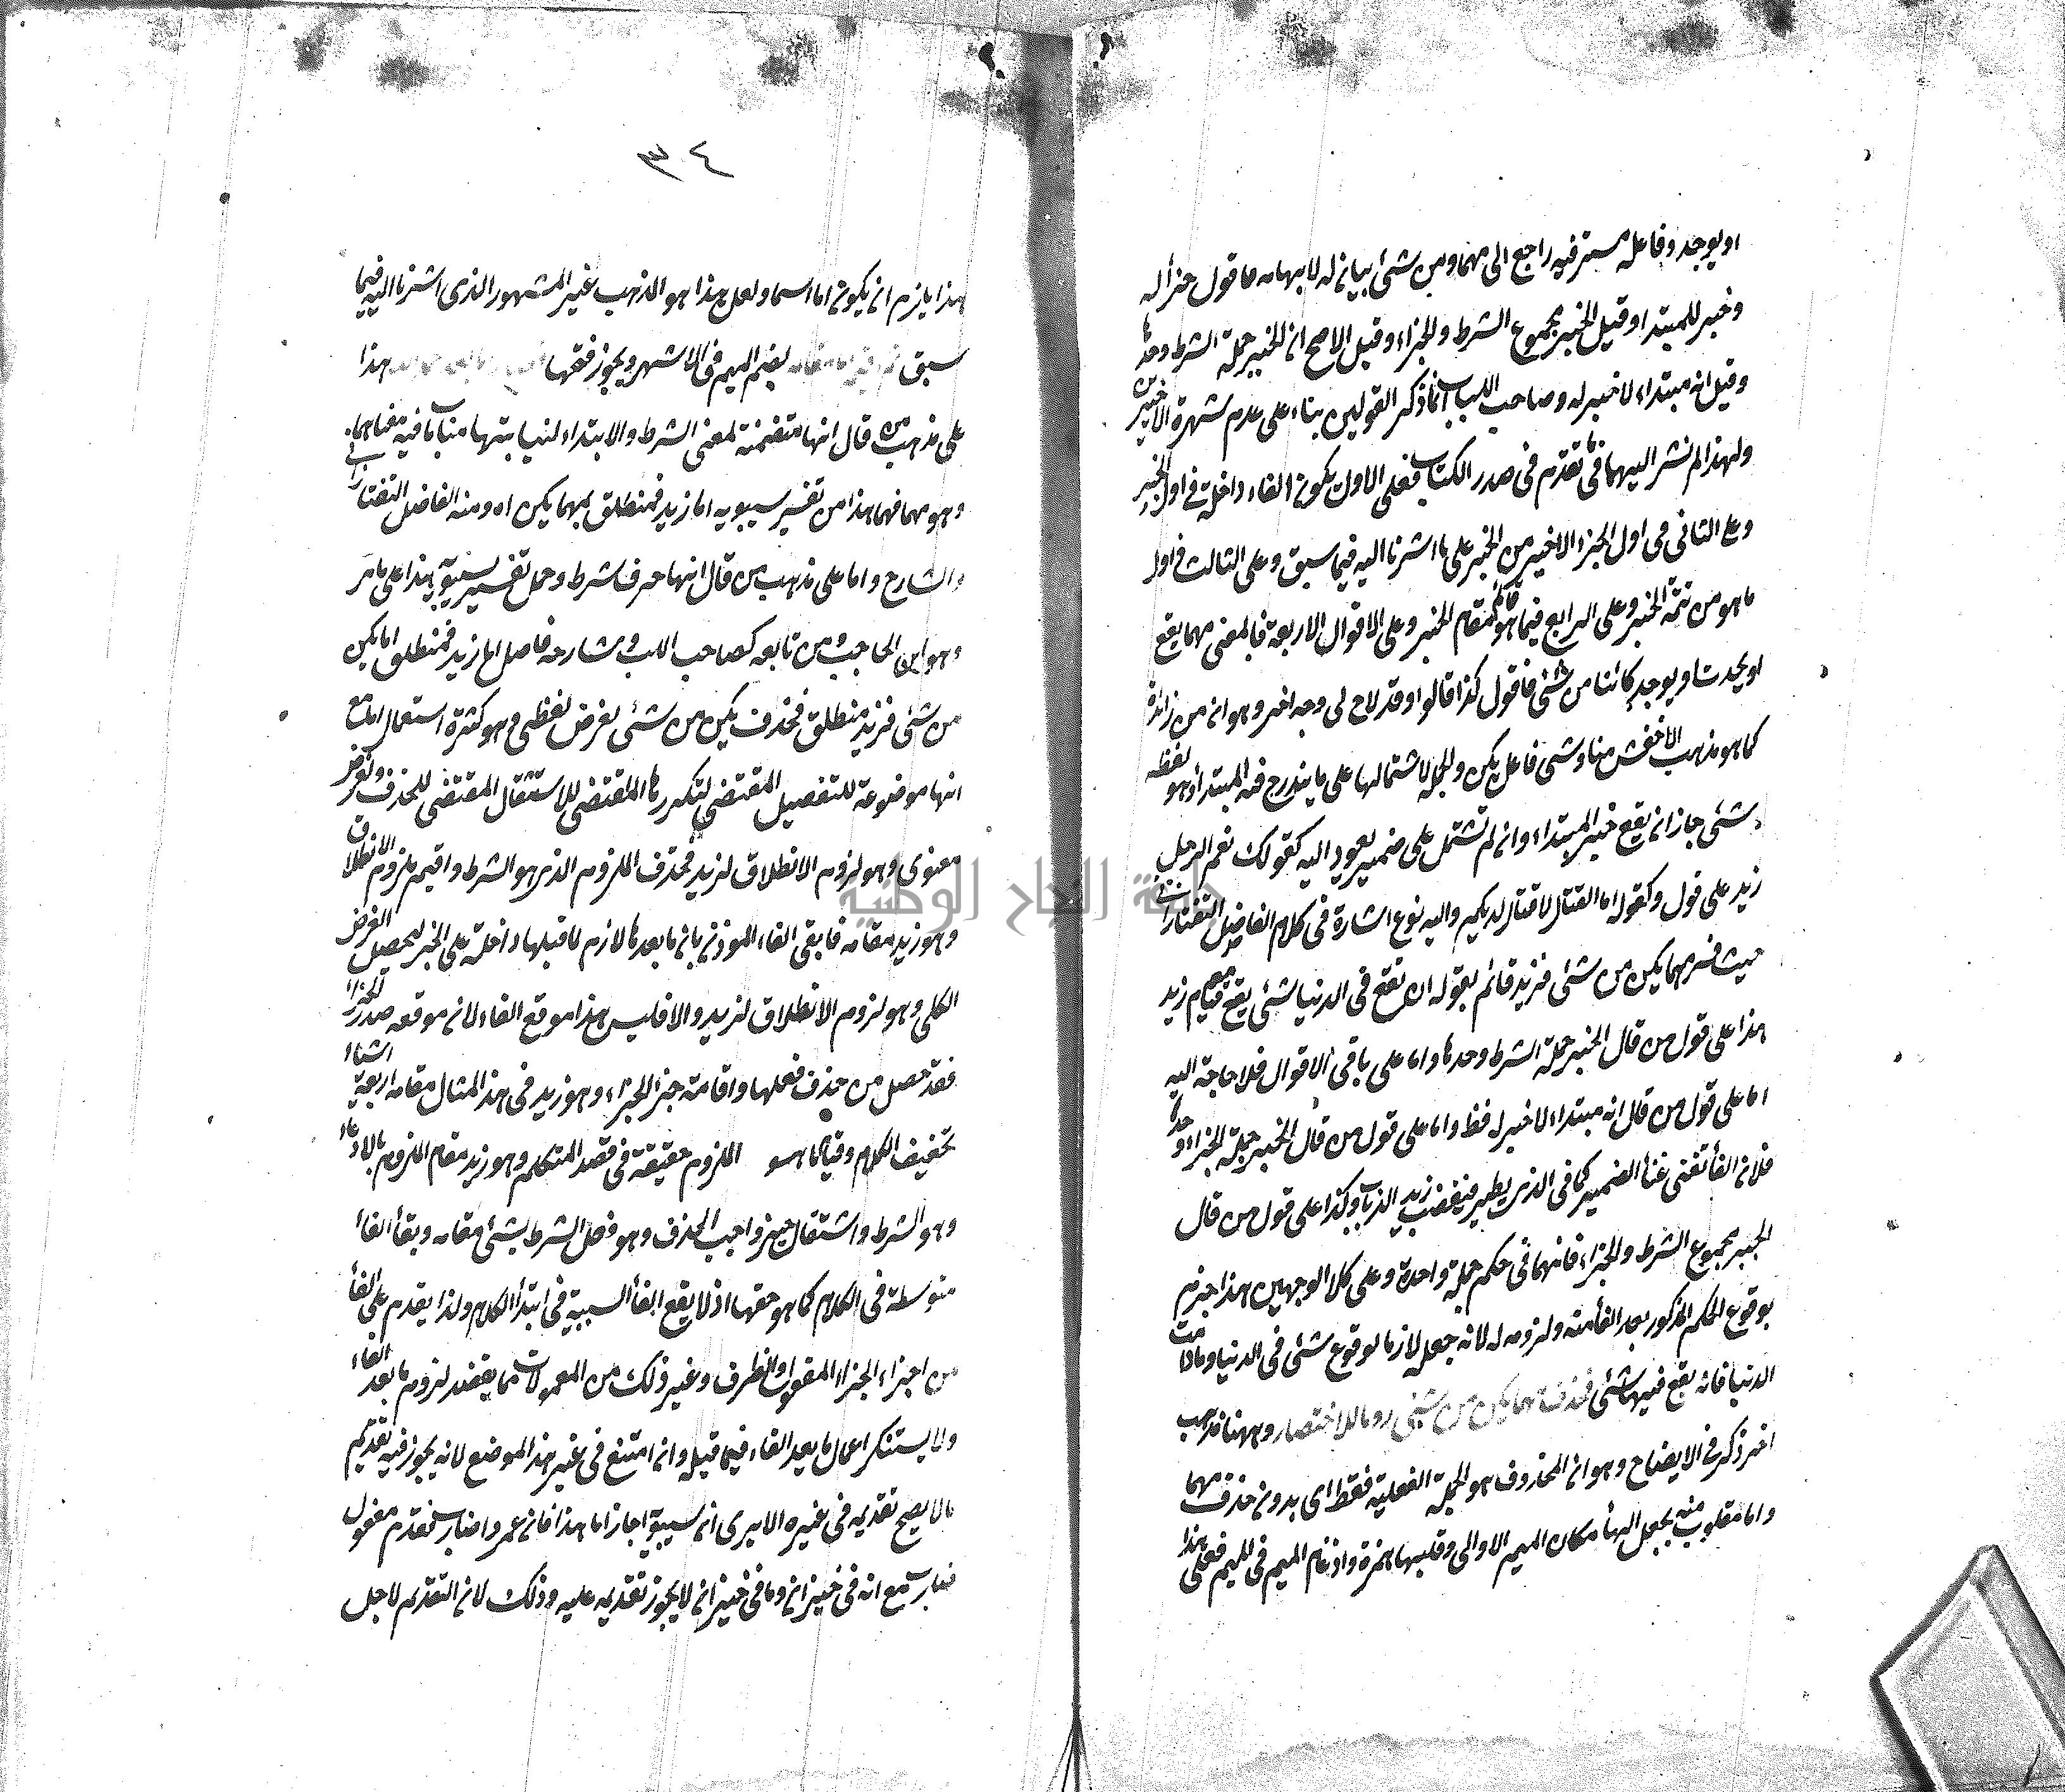 او يوجد وفاعله مستتر فيه راجع الى مهما ومن شئ بيان له لابهامه ما قول جزأ له
وخبر للمبتدا وقيل الخبر مجموع الشرط والجزاء وقيل الاصح ان الخبر جملة الشرط وحدها
وقيل انه مبتداء لا خبر له وصاحب اللباب انما ذكر القولين بناء على عدم شهرة الاخيرين
ولهذا لم نشر اليهما فيما تقدم فى صدر الكتاب فعلى الاول يكون الفاء داخلة فى اول الخبر
وعلى الثانى فى اول الجزء الاخير من الخبر على ما اشرنا اليه فيما سبق وعلى الثالث فى اول
ما هو من تتمة الخبر وعلى الرابع فيما هو قائم مقام الخبر وعلى الاقوال الاربعة فالمعنى مهما يقع
او يحدث او يوجد كائنا من شئ فاقول كذا قالوا وقد لاح لى وجه اخر وهو ان من زائدة
كما هو مذهب الاخفش هنا وشئ فاعل يكن والجملة لاشتمالها على ما يندرج فيه المبتدأ وهو لفظه
شئ جاز ان يقع خبر المبتداء وان لم تشتمل على ضمير يعود اليه كقولك نعم الرجل
زيد على قول وكقوله اما القتال لا قتال لديكم واليه نوع اشارة فى كلام الفاضل التفتازانى
حيث فسر مهما يكن من شئ فزيد قائم بقوله ان تقع فى الدنيا شئ يقع معه قيام زيد
هذا على قول من قال الخبر جملة الشرط وحدها واما على باقى الاقوال فلا حاجة اليه
اما على قول من قال انه مبتداء لا خبر له فظ واما على قول من قال الخبر جملة الجزاء وحدها
فلان الفأ تغنى غنأ الضمير كما فى الذى يطير فيغضب زيد الذباب وكذا على قول من قال
الخبر مجموع الشرط والجزاء فانهما فى حكم جملة واحدة وعلى كلا الوجهين هذا جزم
بوقوع الحكم المذكور بعد الفأ منه ولزومه له لانه جعل لازما لوقوع شئ فى الدنيا وما دامت
الدنيا فانه يقع فيها شئ فحذف مهما يكن من شئ روما للاختصار وههنا مذهب
اخر ذكره فى الايضاح وهو ان المحذوف هو الجملة الفعلية فقط اى بدون حذف مهما
واما مقلوب منه بجعل الهأ مكان الميم الاولى وقلبها همزة وادغام الميم فى الميم فعلى هذا
٣٤
هذا يلزم ان يكون اما اسما ولعل هذا هو المذهب غير المشهور الذى اشرنا اليه فيما
سبق بضم الميم فى الاشهر ويجوز فتحها هذا
على مذهب من قال انها متضمنة لمعنى الشرط والابتداء لنيابتها مناب ما فيه معناهما
وهو مهما فهما هذا من تفسير سيبويه اما زيد فمنطلق بمهما يكن اه ومنه الفاضل التفتازانى
والشارح واما على مذهب من قال انها حرف شرط وحمل تفسير سيبويه هذا على ما مر
وهو ابن الحاجب ومن تابعه كصاحب اللب وشارحه فاصل اما زيد فمنطلق اما يكن
من شئ فزيد منطلق فحذف يكن من شئ لغرض لفظى وهو كثرة استعمال اما مع
انها موضوعة للتفصيل المقتضى لتكررها المقتضى للاستثقال المقتضى للحذف ولغرض
معنوى وهو لزوم الانطلاق لزيد فحذف الملزوم الذى هو الشرط واقيم ملزوم الانطلاق
وهو زيد مقامه فابقى الفاء الموذن بان ما بعدها لازم لما قبلها داخلة على الخبر ليحصل الغرض
الكلى وهو لزوم الانطلاق لزيد والا فليس هذا موقع الفاء لان موقعه صدر الجزاء
فقد حصل من حذف فعلها واقامة جزأ الجزاء وهو زيد فى هذا المثال مقامه اربعة اشياء
تخفيف الكلام وقيام ما هو الملزوم حقيقة فى قصد المتكلم وهو زيد مقام الملزوم بالادعاء
وهو الشرط واشتغال حيز واجب الحذف وهو فصل الشرط بشئ مقامه وبقأ الفأ
متوسطة فى الكلام كما هو حقها اذ لا يقع الفأ السببية فى ابتدأ الكلام ولذا يقدم على الفأ
من اجزاء الجزاء المفعول والظرف وغير ذلك من المعمولات مما يقصد لزوم ما بعد الفاء
ولا يستنكر اعمال ما بعد الفاء فيما قبله وان امتنع فى غير هذا الموضع لانه يجوز فيه تقديم
ما لا يصح تقديمه فى غيره الا يرى ان سيبويه اجاز اما هذا فان عمرو اضارب فقدم مفعول
ضارب مع انه فى خبر ان وما فى خبر ان لا يجوز تقديمه عليه وذلك لان التقديم لاجل
جامعة النجاح الوطنية